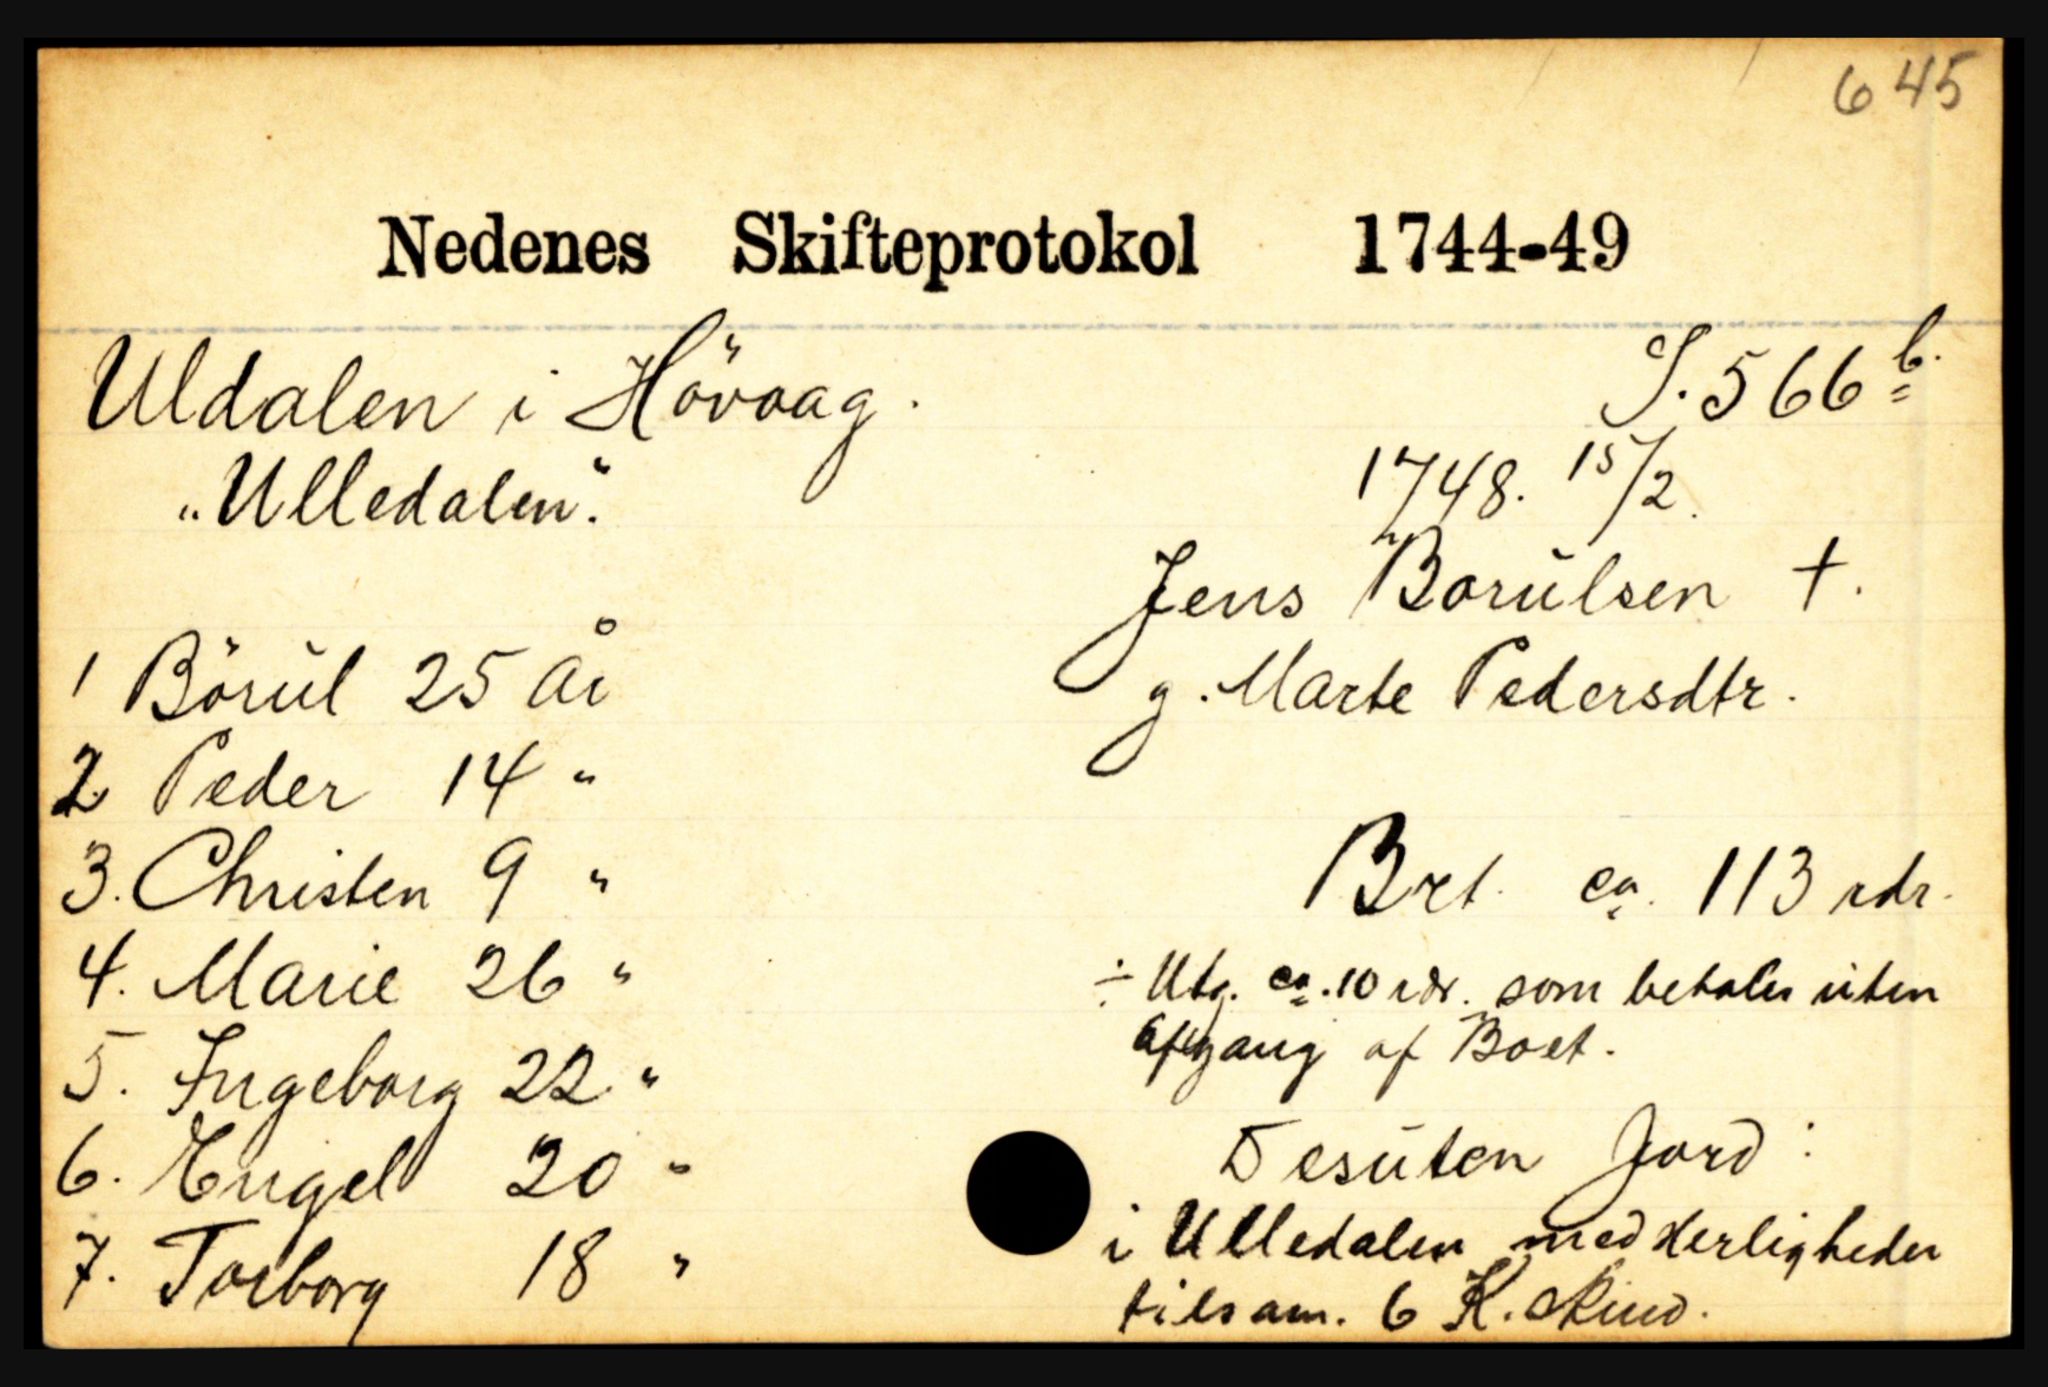 645
Nedenes Skifteprotokol 1744-49
Uldalen i Hövaag.
S. 566 b.
"Ulledalen".
1748. 15/2.
Jens Borulsen †.
g. Marte Pedersdtr.
1 Börul 25 År
2 Peder 14 "
3. Christen 9 "
4. Marie 26 "
5. Ingeborg 22 "
6. Engel 20 "
7. Torborg 18 "
Brt. ca. 113 rdr.
÷ Utg. ca. 10 rdr. som betales uten
afgang af Boet.
Desuten Jord:
i Ulledalen med Herligheder
tilsam. 6 K. skind.